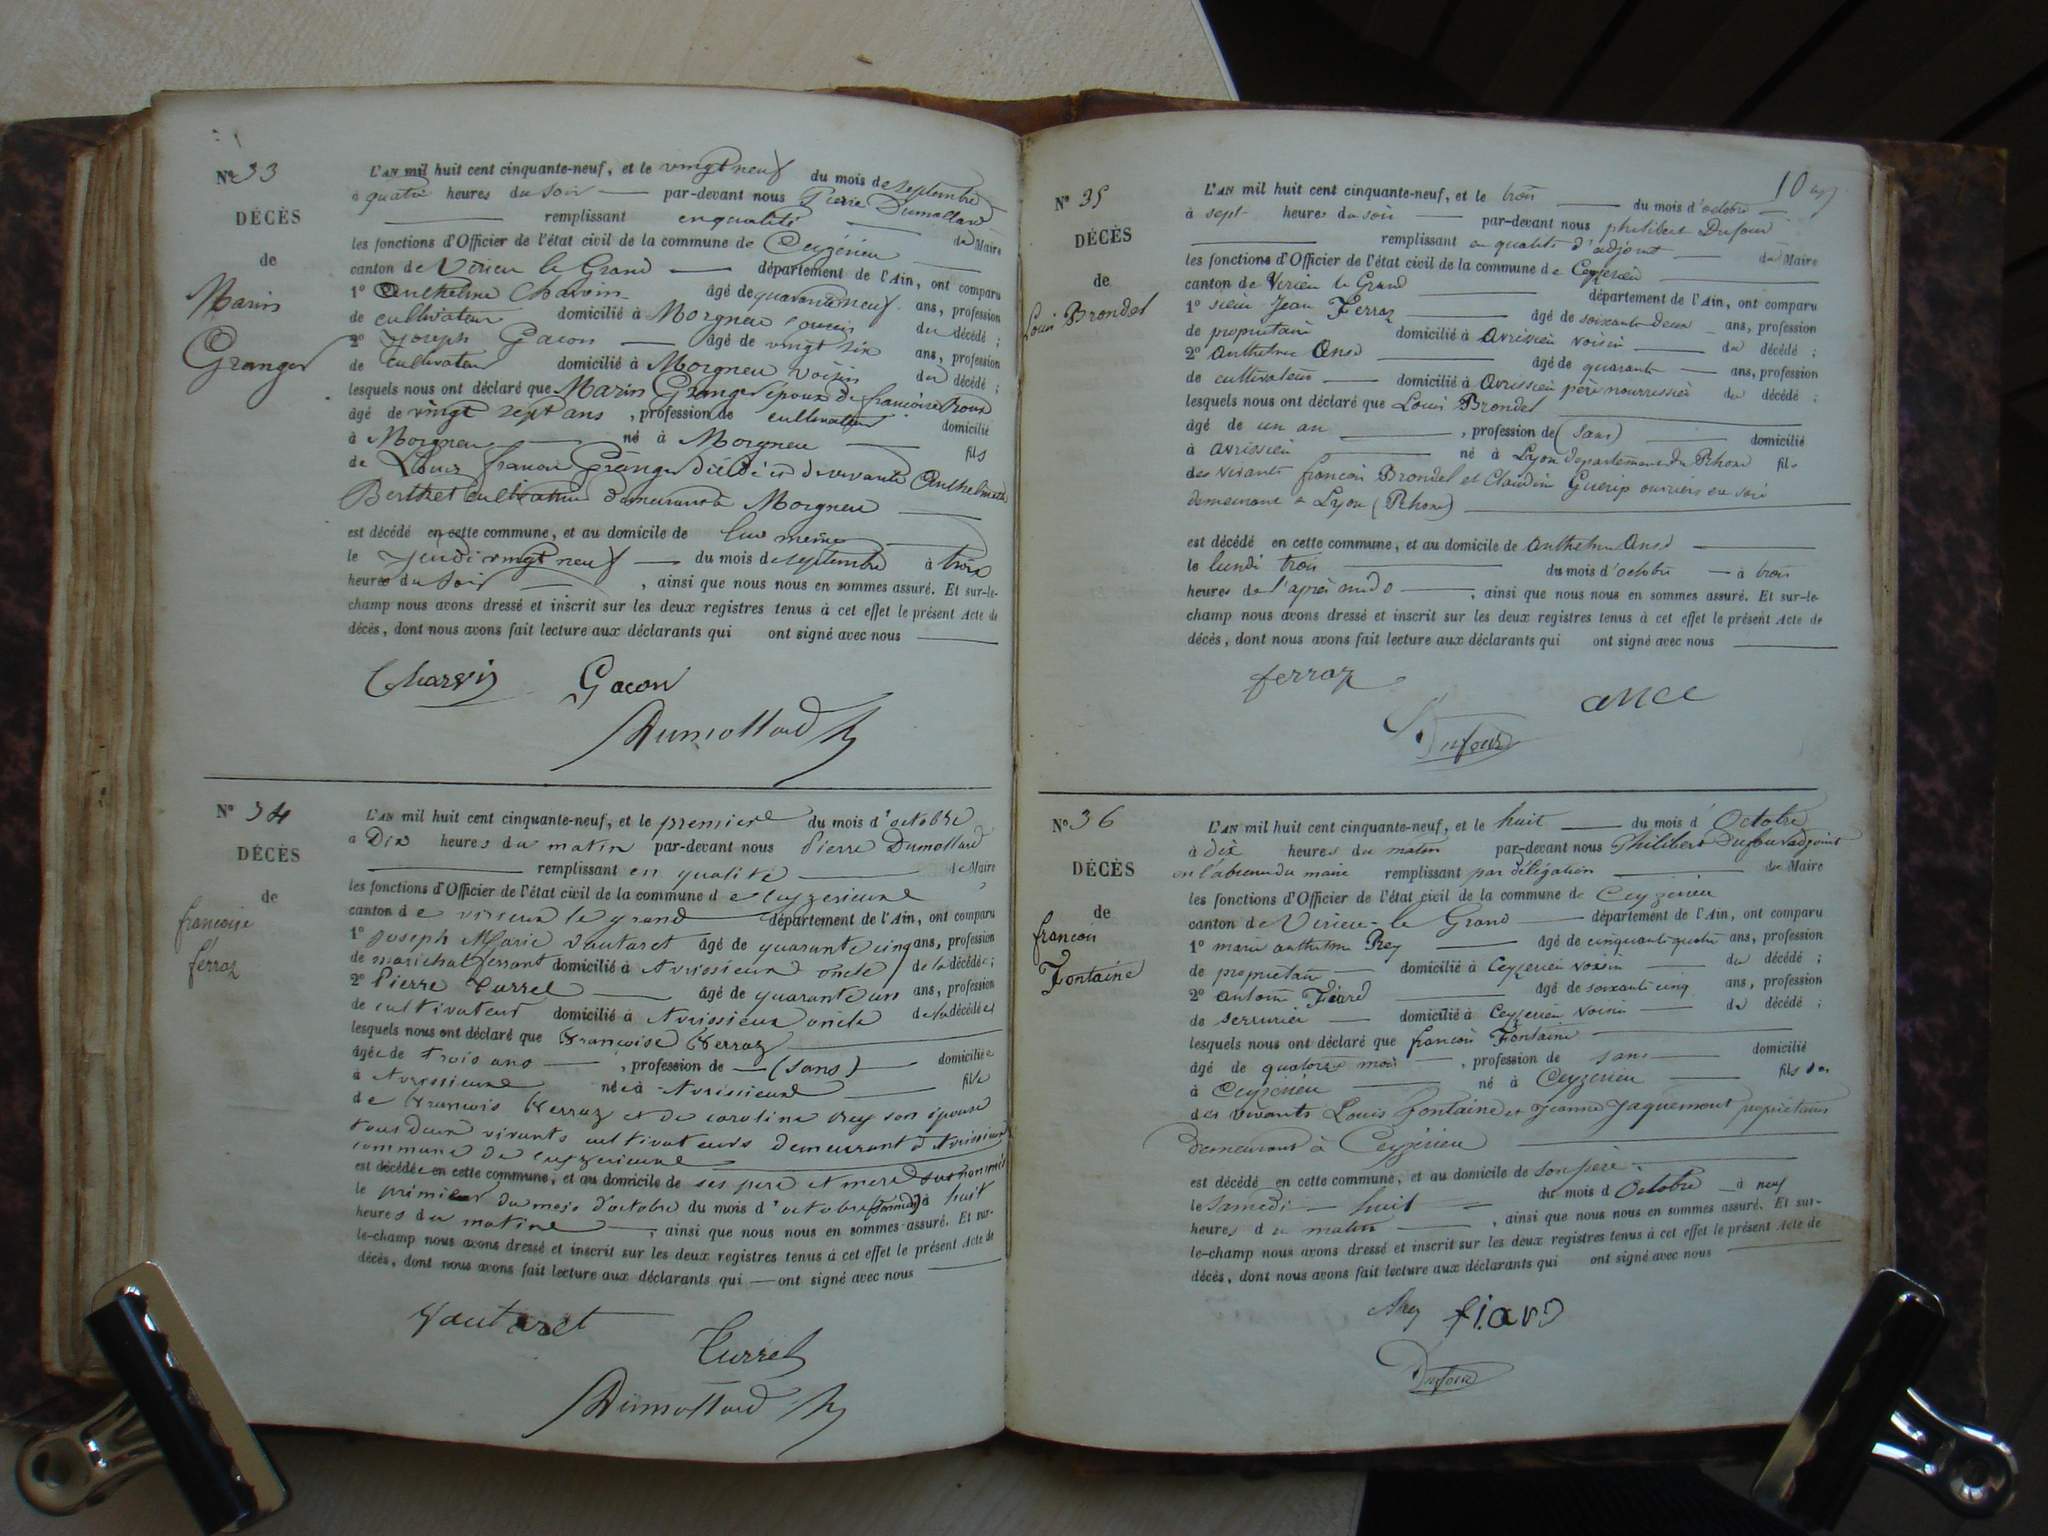 Nº 33
DÉCÈS
de
Marin
Granger
L'AN mil huit cent cinquante-neuf, et le vingt neuf du mois de septembre
à quatre heures du soir par-devant nous Pierre Dumollard
remplissant en qualité de Maire
les fonctions d'Officier de l'état civil de la commune de Ceyzérieu
canton de Virieu le Grand département de l'Ain, ont comparu
1º Anthelme Charvin âgé de quarante neuf ans, profession
de cultivateur domicilié à Morgneu cousin du décédé ;
2º Joseph Gacon âgé de vingt six ans, profession
de cultivateur domicilié à Morgneu voisin du décédé ;
lesquels nous ont déclaré que Marin Granger époux de françoise Roux
âgé de vingt sept ans , profession de cultivateur domicilié
à Morgneu né à Morgneu fils
de françois Granger décédé et de vivante Anthelmette
Berthet cultivatrice demeurant à Morgneu
est décédé en cette commune, et au domicile de lui même
le jeudi vingt neuf du mois de septembre à trois
heures du soir , ainsi que nous nous en sommes assuré. Et sur-le-
champ nous avons dressé et inscrit sur les deux registres tenus à cet effet le présent Acte de
décès, dont nous avons fait lecture aux déclarants qui ont signé avec nous
Charvin Gacon
Dumollard
Nº 34
DÉCÈS
de
francoise
ferraz
L'AN mil huit cent cinquante-neuf, et le premier du mois d'octobre
à Dix heures du matin par-devant nous Pierre Dumollard
remplissant en qualité de Maire
les fonctions d'Officier de l'état civil de la commune de
canton de virieux le grand département de l'Ain, ont comparu
1º Joseph Marie Vautaret âgé de quarante cinq ans, profession
de marichal ferrant domicilié à Avrissieux oncle de la décédée ;
2º Pierre Turrel âgé de quarante un ans, profession
de cultivateur domicilié à Avrissieux oncle de la décédée
lesquels nous ont déclaré que Francoise Ferraz
âgée de trois ans , profession de (sans) domiciliée
à Avrissieux née à Avrissieux fille
de Francois Ferraz et de caroline Rey son épouse
tous deux vivants cultivateurs demeurant à Avrissieux
commune de
est décédée en cette commune, et au domicile de ses père et mère sus nommés
le premier du mois d'octobre du mois d'octobre (samedi) à huit
heures du matin , ainsi que nous nous en sommes assuré. Et sur-
le-champ nous avons dressé et inscrit sur les deux registres tenus à cet effet le présent Acte de
décès, dont nous avons fait lecture aux déclarants qui ont signé avec nous
Vautaret
Turrel
Dumollard
Nº 35
DÉCÈS
de
Louis Brondel
L'AN mil huit cent cinquante-neuf, et le trois du mois d'octobre
à sept heures du soir par-devant nous philibert Dufour
remplissant en qualité d'adjoint du Maire
les fonctions d'Officier de l'état civil de la commune de Ceyzerieu
canton de Virieu le Grand département de l'Ain, ont comparu
1º sieur Jean Ferraz âgé de soixante deux ans, profession
de propriétaire domicilié à Avrissieu voisin du décédé ;
2º Anthelme Anse âgé de quarante ans, profession
de cultivateur domicilié à Avrissieu père nourrissier du décédé ;
lesquels nous ont déclaré que Louis Brondel
âgé de un an , profession de (sans) domicilié
à avrissieu né à Lyon departement du Rhone fils
des vivants françois Brondel et Claudine ouvriers en soie
demeurant à Lyon (Rhone)
est décédé en cette commune, et au domicile de Anthelme Anse
le lundi trois du mois d'octobre à trois
heures de l'après midi , ainsi que nous nous en sommes assuré. Et sur-le-
champ nous avons dressé et inscrit sur les deux registres tenus à cet effet le présent Acte de
décès, dont nous avons fait lecture aux déclarants qui ont signé avec nous
ferraz
ance
Dufour
Nº 36
DÉCÈS
de
francois
Fontaine
L'AN mil huit cent cinquante-neuf, et le huit du mois d'Octobre
à dix heures du matin par-devant nous Philibert Dufour adjoint
en l'absence du maire remplissant par délégation du Maire
les fonctions d'Officier de l'état civil de la commune de Ceyzerieu
canton de Virieu-le Grand département de l'Ain, ont comparu
1º marin anthelme Rey âgé de cinquante quatre ans, profession
de propriétaire domicilié à Ceyzerieu voisin du décédé ;
2º antoine Fiard âgé de soixante cinq ans, profession
de serrurier domicilié à Ceyzerieu voisin du décédé ;
lesquels nous ont déclaré que françois Fontaine
âgé de quatorze mois , profession de sans domicilié
à Ceyzérieu né à Ceyzerieu fils
des vivants Louis fontaine et Jeanne Jaquemont propriétaires
demeurant à Ceyzérieu
est décédé en cette commune, et au domicile de son père
le samedi huit du mois d'Octobre à neuf
heures du matin , ainsi que nous nous en sommes assuré. Et sur-
le-champ nous avons dressé et inscrit sur les deux registres tenus à cet effet le présent Acte de
décès, dont nous avons fait lecture aux déclarants qui ont signé avec nous
Rey fiard
Dufour